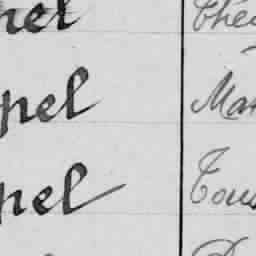 pel Thé
pel Mat
pel Tous